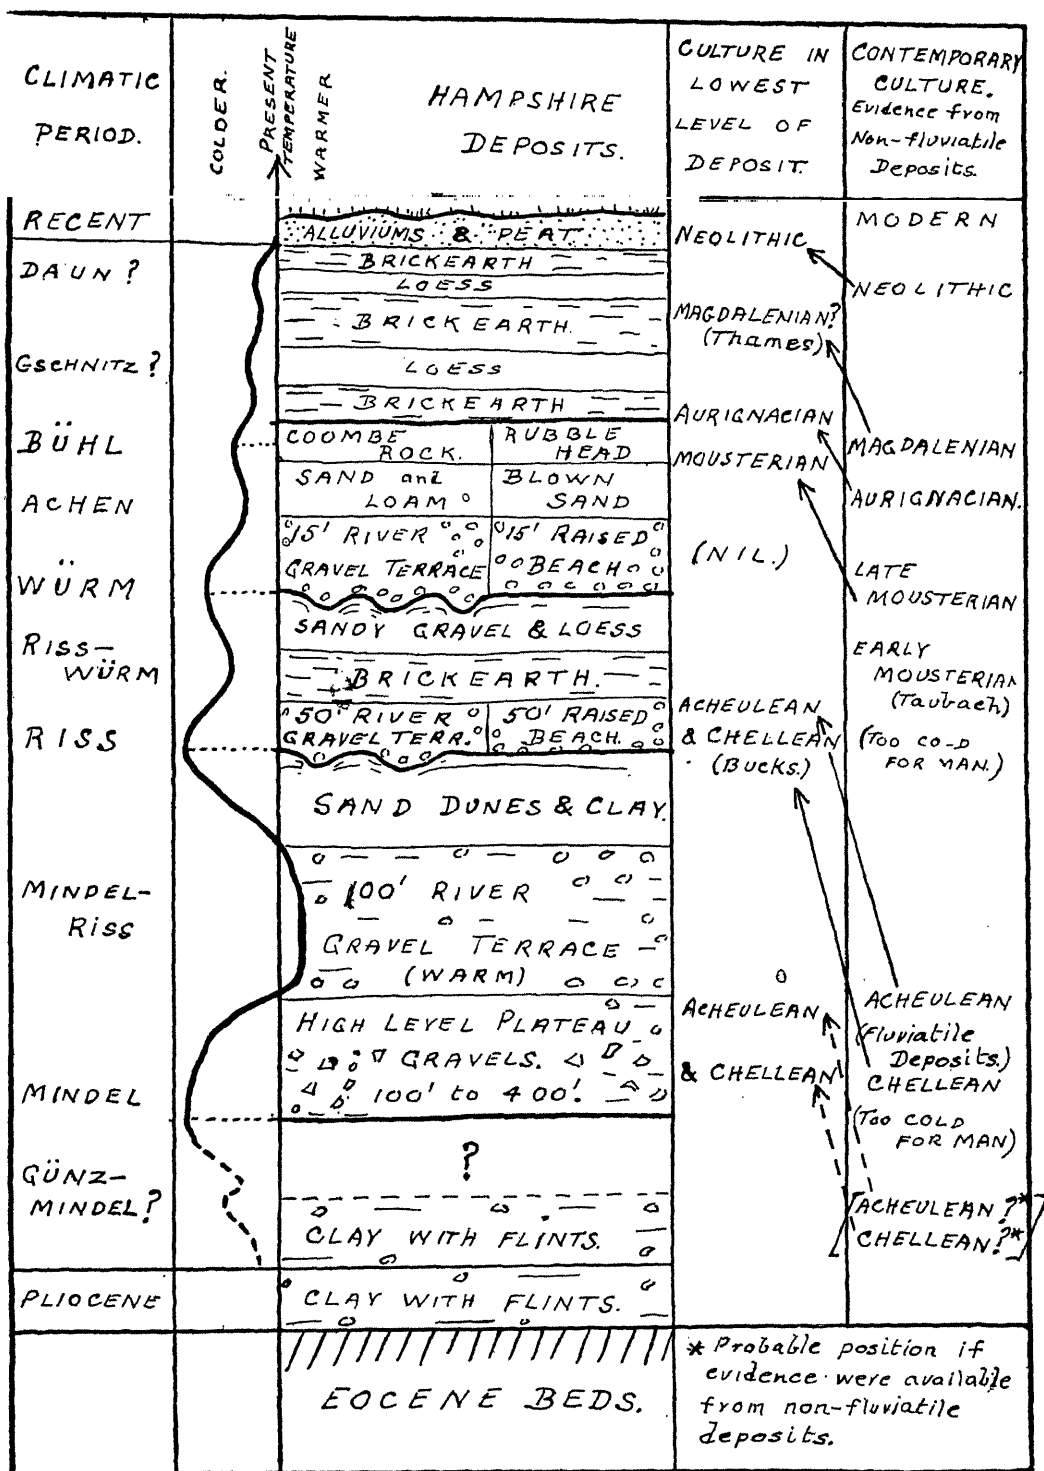 CLIMATIC
PERIOD.
COLDER.
PRESENT
TEMPERATURE
WARMER
HAMPSHIRE
DEPOSITS.
CULTURE IN
LOWEST
LEVEL OF
DEPOSIT.
CONTEMPORARY
CULTURE.
Evidence from
Non-fluviatile
Deposits.
RECENT
DAUN ?
GSCHNITZ ?
BÜHL
ACHEN
WÜRM
RISS-
WÜRM
RISS
MINDEL-
RISS
MINDEL
GÜNZ-
MINDEL?
PLIOCENE
ALLUVIUMS & PEAT
BRICKEARTH
LOESS
BRICKEARTH.
LOESS
BRICKEARTH
COOMBE
ROCK.
RUBBLE
HEAD
SAND and
LOAM
BLOWN
SAND
15' RIVER
GRAVEL TERRACE
15' RAISED
BEACH
SANDY GRAVEL & LOESS
BRICKEARTH.
50' RIVER
GRAVEL TERR.
50' RAISED
BEACH.
SAND DUNES & CLAY.
100' RIVER
GRAVEL TERRACE
(WARM)
HIGH LEVEL PLATEAU
GRAVELS.
100' to 400'.
?
CLAY WITH FLINTS.
CLAY WITH FLINTS.
EOCENE BEDS.
NEOLITHIC
MAGDALENIAN?
(Thames)
AURIGNACIAN
MOUSTERIAN
(NIL.)
ACHEULEAN
& CHELLEAN
(BUCKS.)
ACHEULEAN
& CHELLEAN
MODERN
NEOLITHIC
MAGDALENIAN
AURIGNACIAN.
LATE
MOUSTERIAN
EARLY
MOUSTERIAN
(Taubach)
(TOO COLD
FOR MAN.)
ACHEULEAN
(Fluviatile
Deposits.)
CHELLEAN
(TOO COLD
FOR MAN)
[ACHEULEAN?*
CHELLEAN?*]
* Probable position if
evidence were available
from non-fluviatile
deposits.